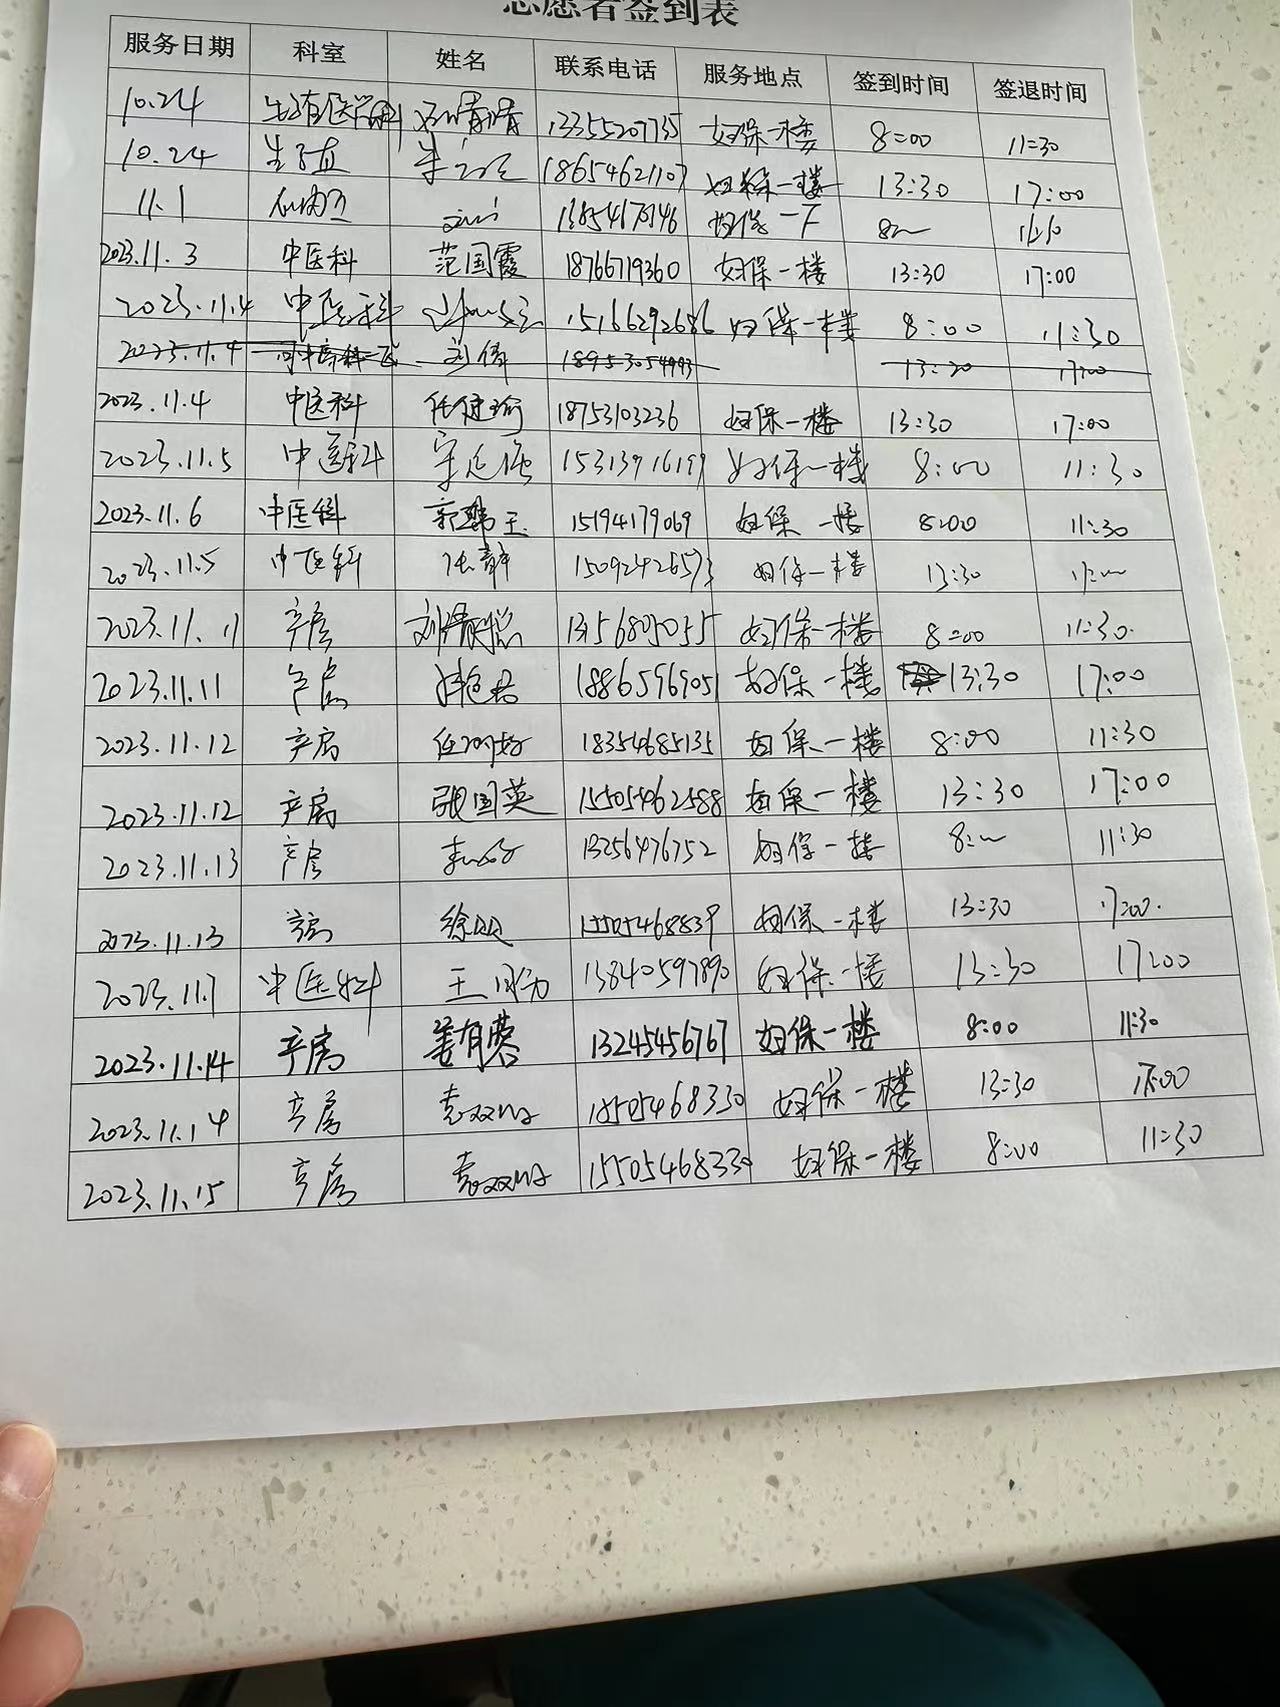 志愿者签到表
服务日期 科室 姓名 联系电话 服务地点 签到时间 签退时间
10.24 生殖医学科 13355207735 妇保一楼 8:00 11:30
10.24 生殖 18654621107 妇保一楼 13:30 17:00
11.1 妇保一
2023.11.3 中医科 范国霞 18766719360 妇保一楼 13:30 17:00
2023.11.4 中医科 15166292686 妇保一楼 8:00 11:30
2023.11.4 刘倩 18953054993 13:30 17:00
2023.11.4 中医科 任健瑜 18753103236 妇保一楼 13:30 17:00
2023.11.5 中医科 15313916199 妇保一楼 8:00 11:30
2023.11.6 中医科 15194179069 妇保一楼 8:00 11:30
2023.11.5 中医科 张静 15092426573 妇保一楼 13:30
2023.11.11 产房 妇保一楼 8:00 11:30.
2023.11.11 产房 18865969051 妇保一楼 13:30 17:00
2023.11.12 产房 18354685135 妇保一楼 8:00 11:30
2023.11.12 产房 张国英 15505462588 妇保一楼 13:30 17:00
2023.11.13 产房 13256476752 妇保一楼 11:30
2023.11.13 产房 15505468839 妇保一楼 13:30 17:00.
2023.11.7 中医科 13840597890 妇保一楼 13:30 17:00
2023.11.14 产房 姜有蓉 13245456767 妇保一楼 8:00 11:30
2023.11.14 产房 15505468330 妇保一楼 13:30 17:00
2023.11.15 产房 15505468330 妇保一楼 8:00 11:30